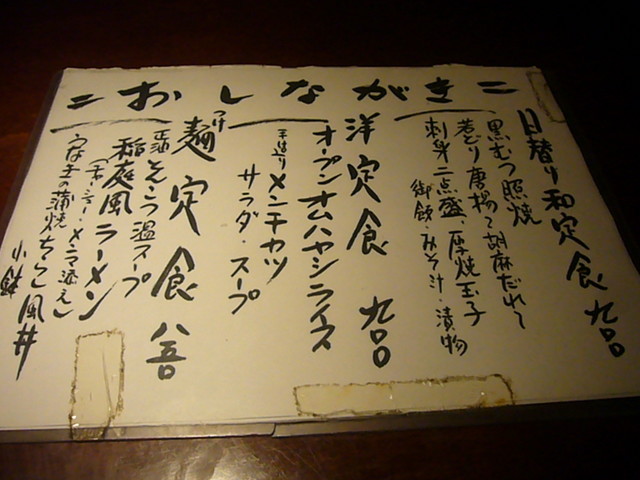 = おしながき =
日替り和定食 九〇〇
黒むつ照焼
若どり唐揚〜胡麻だれ〜
刺身二点盛・厚焼玉子
御飯・みそ汁・漬物
洋定食 九〇〇
オープンオムハヤシライス
手造りメンチカツ
サラダ・スープ
つけ麺定食 八五〇
正油とんこつ温スープ
稲庭風ラーメン
(チャーシュー・メンマ添え)
うなぎの蒲焼ちらし風丼
小鉢